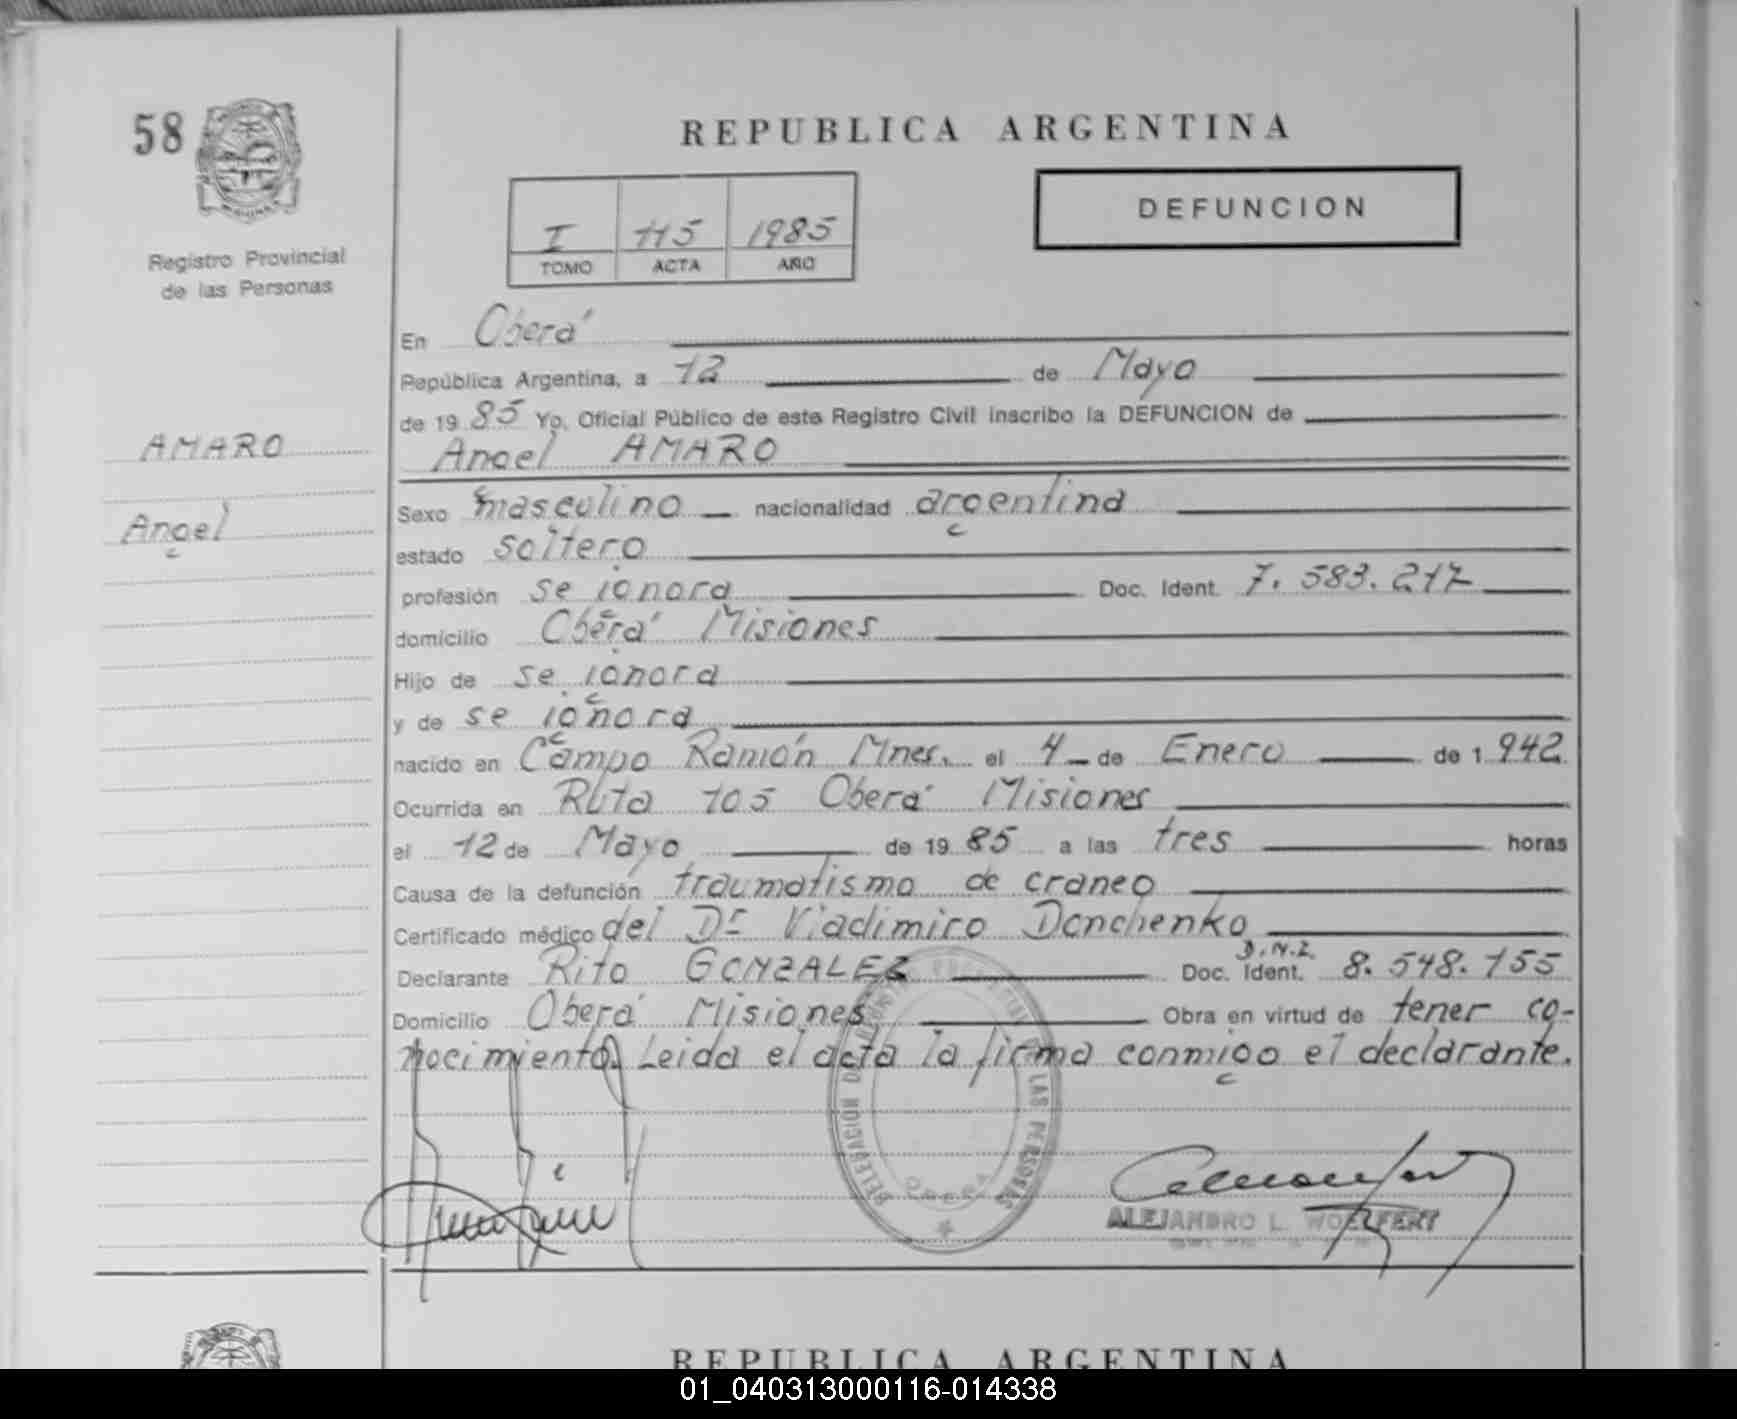 58
REPUBLICA ARGENTINA
DEFUNCION
I 115 1985
TOMO ACTA AÑO
Registro Provincial
de las Personas
AMARO
Angel
En Oberá
República Argentina, a 12 de Mayo
de 19 85 Yo, Oficial Público de este Registro Civil inscribo la DEFUNCION de
Angel AMARO
Sexo masculino nacionalidad argentina
estado soltero
profesión se ignora Doc. Ident. 7.583.217
domicilio Oberá Misiones
Hijo de se ignora
y de se ignora
nacido en Campo Ramón Mnes. el 4 de Enero de 1 942
Ocurrida en Ruta 105 Oberá Misiones
el 12 de Mayo de 19 85 a las tres horas
Causa de la defunción traumatismo de craneo
Certificado médico del Dr Vladimiro Donchenko
Declarante Rito GONZALEZ Doc. Ident. D.N.I. 8.548.155
Domicilio Oberá Misiones Obra en virtud de tener co-
nocimiento. Leida el acta la firma conmigo el declarante.
DELEGACION LAS PERSONAS
OBERA
ALEJANDRO L. WOELFERT
REPUBLICA ARGENTINA
01_040313000116-014338